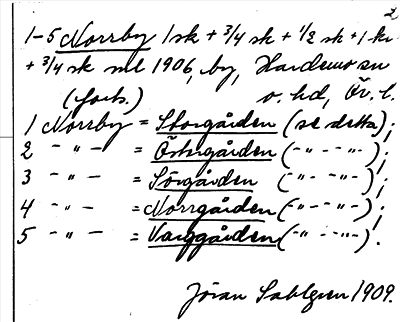 2
1-5 Norrby 1 sk + 3/4 sk + 1/2 sk + 1 sk
+ 3/4 sk sml 1906, by, Hardemo sn
(forts.) o. hd, Ör. l.
1 Norrby = Storgården (se detta);
2 -"- = Östergården (-"- -"-);
3 -"- = Sörgården (-"- -"-);
4 -"- = Norrgården (-"- -"-);
5 -"- = Varggården (-"- -"-).
Jöran Sahlgren 1909.